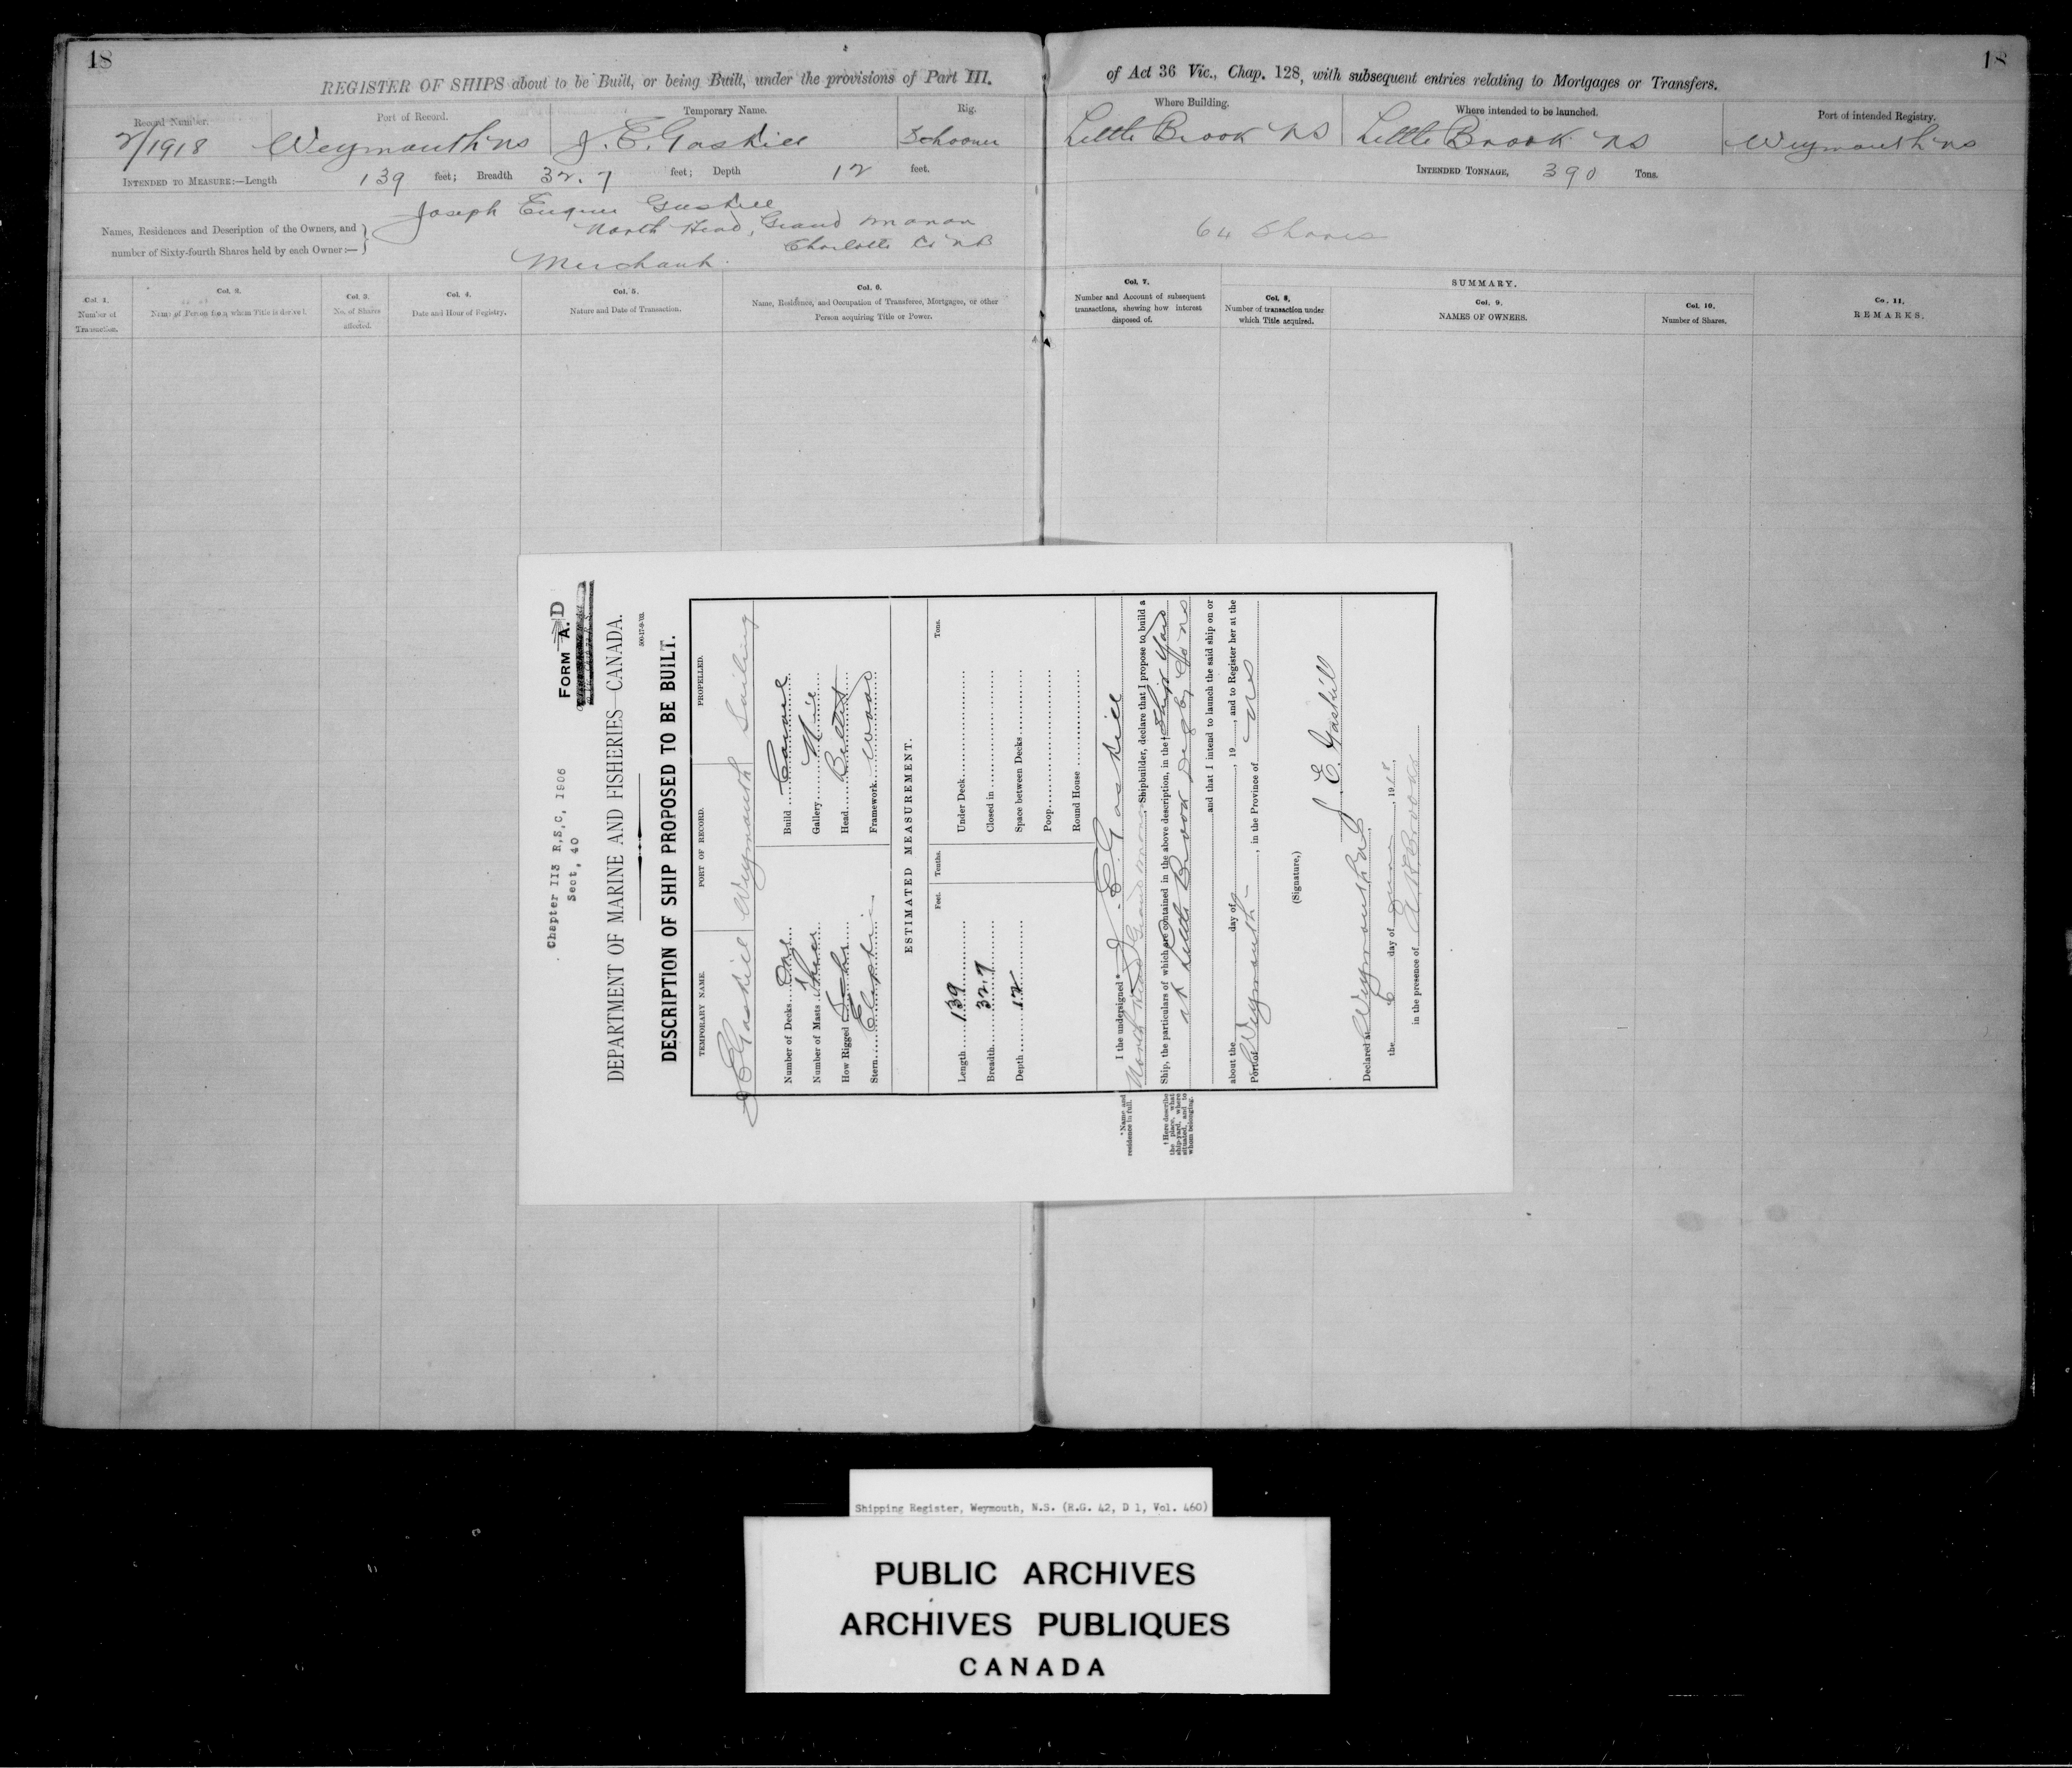 18
18
REGISTER OF SHIPS about to be Built, or being Built, under the provisions of Part III.
of Act 36 Vic., Chap. 128, with subsequent entries relating to Mortgages or Transfers.
Record Number. Port of Record. Temporary Name. Rig. Where Building. Where intended to be launched. Port of intended Registry.
2/1918 Weymouth NS J. E. Gaskill Schooner Little Brook NS Little Brook NS Weymouth NS
INTENDED TO MEASURE:—Length 139 feet; Breadth 32.7 feet; Depth 12 feet. INTENDED TONNAGE, 390 Tons.
Names, Residences and Description of the Owners, and
number of Sixty-fourth Shares held by each Owner:—
Joseph Eugene Gaskill
North Head, Grand Manan
Charlotte Co NB
Merchant
64 Shares
Col. 1. Number of Transaction.
Col. 2. Name of Person from whom Title is derived.
Col. 3. No. of Shares affected.
Col. 4. Date and Hour of Registry.
Col. 5. Nature and Date of Transaction.
Col. 6. Name, Residence, and Occupation of Transferee, Mortgagee, or other Person acquiring Title or Power.
Col. 7. Number and Account of subsequent transactions, shewing how interest disposed of.
SUMMARY.
Col. 8. Number of transaction under which Title acquired.
Col. 9. NAMES OF OWNERS.
Col. 10. Number of Shares.
Co. 11. REMARKS.
Chapter II3 R,S,C, 1906
Sect, 40
FORM A. D
DEPARTMENT OF MARINE AND FISHERIES—CANADA.
500-17-9-'03.
DESCRIPTION OF SHIP PROPOSED TO BE BUILT.
TEMPORARY NAME. PORT OF RECORD. PROPELLED.
J E Gaskill Weymouth Sailing
Number of Decks One Build Carvel
Number of Masts Three Gallery
How Rigged Schr Head Billet
Stern Framework Wood
ESTIMATED MEASUREMENT.
Feet. Tenths. Tons.
Length 139 Under Deck
Breadth 32.7 Closed in
Depth 12 Space between Decks
Poop
Round House
*Name and residence in full.
I the undersigned* J. E. Gaskill
North Head Grand Manan Shipbuilder, declare that I propose to build a
† Here describe the place, what ship-yard, where situated, and to whom belonging.
Ship, the particulars of which are contained in the above description, in the† Ship Yard
at Little Brook Digby Co NS
and that I intend to launch the said ship on or
about the day of , 19 , and to Register her at the
Port of Weymouth , in the Province of NS
(Signature,) J. E. Gaskill
Declared at Weymouth NS
the 6 day of June , 1918,
in the presence of
Shipping Register, Weymouth, N.S. (R.G. 42, D 1, Vol. 460)
PUBLIC ARCHIVES
ARCHIVES PUBLIQUES
CANADA